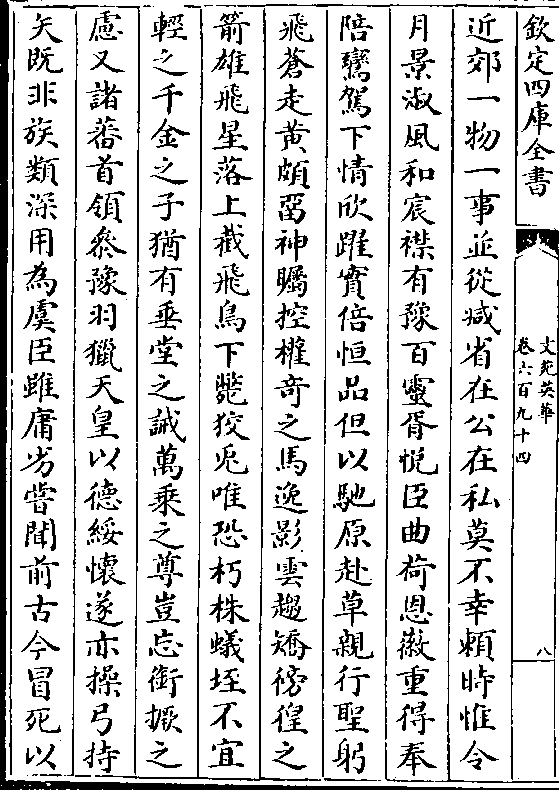 欽定四庫全書
文苑英華
卷六百九十四
八
近郊一物一事並從减省在公在私莫不幸頼時惟令
月景淑風和宸襟有豫百靈胥悦臣曲荷恩徽重得奉
陪鸞駕下情欣躍實倍恒品但以馳原赴草親行聖躬
飛蒼走黄頗留神矚控權竒之馬逸影雲趨矯傍徨之
箭雄飛星落上截飛鳥下斃狡兎唯恐朽株蟻垤不宜
輕之千金之子猶有垂堂之誡萬乗之尊豈忘銜橛之
慮又諸蕃首領叅豫羽獵天皇以徳綏懷遂亦操弓持
矢既非族類深用為虞臣雖庸劣嘗聞前古今冒死以